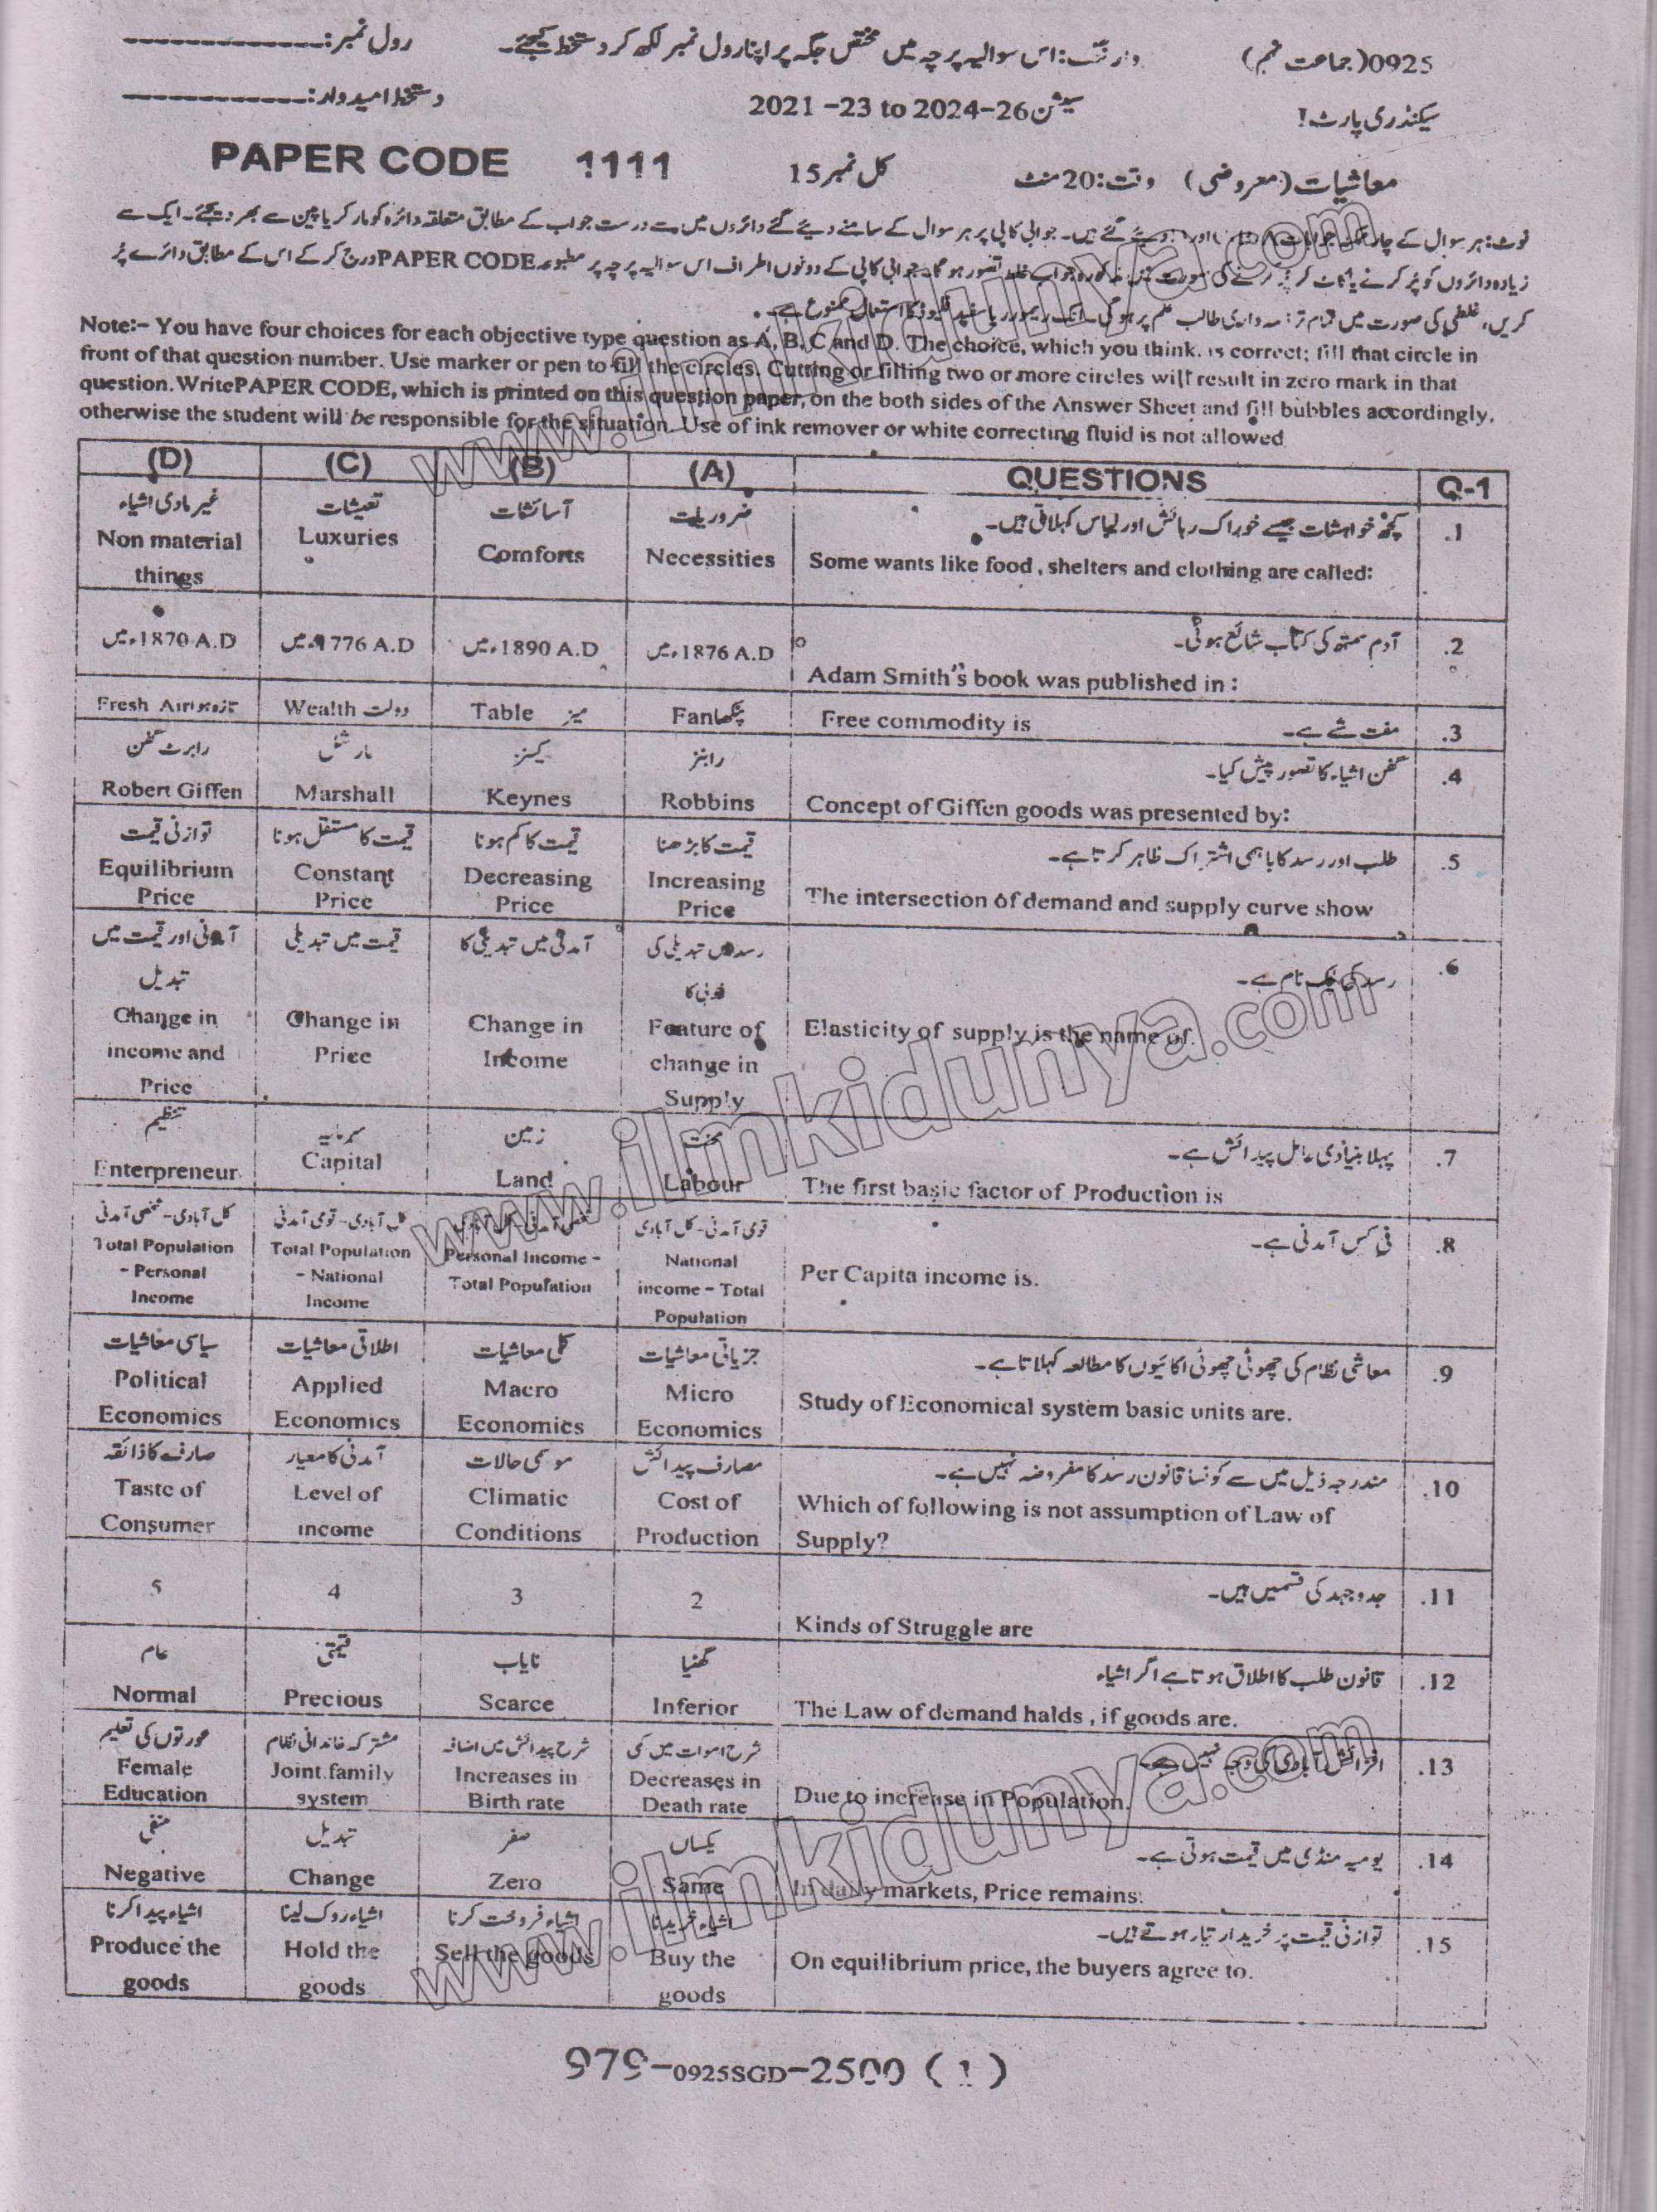 0925(جماعت نہم) وارننگ: اس سوالیہ پرچہ میں مختص جگہ پر اپنا رول نمبر لکھ کر دستخط کیجئے۔ رول نمبر: --------------
سیکنڈری پارٹ I سیشن 2021 -23 to 2024-26 دستخط امیدوار: --------------
معاشیات (معروضی) وقت: 20 منٹ کل نمبر 15 PAPER CODE 1111
نوٹ: ہر سوال کے چار اور دیئے گئے ہیں۔ جوابی کاپی پر ہر سوال کے سامنے دیئے گئے دائروں میں سے درست جواب کے مطابق متعلقہ دائرہ کو مارکر یا پین سے بھر دیجئے۔ ایک سے
زیادہ دائروں کو پُر کرنے یا کاٹ کر پُر کرنے کی صورت میں مذکورہ جواب غلط تصور ہو گا۔ جوابی کاپی کے دونوں اطراف اس سوالیہ پرچہ پر مطبوعہ PAPER CODE درج کر کے اس کے مطابق دائرے پُر
کریں، غلطی کی صورت میں تمام تر ذمہ داری طالب علم پر ہو گی۔ انک ریموور یا سفید فلیوڈ کا استعمال ممنوع ہے۔
Note:- You have four choices for each objective type question as A, B, C and D. The choice, which you think. is correct; fill that circle in
front of that question number. Use marker or pen to fill the circles. Cutting or filling two or more circles will result in zero mark in that
question. Write PAPER CODE, which is printed on this question paper, on the both sides of the Answer Sheet and fill bubbles accordingly,
otherwise the student will be responsible for the situation. Use of ink remover or white correcting fluid is not allowed
(D) (C) (B) (A) QUESTIONS Q-1
غیر مادی اشیاء تعیشات آسائشات ضروریات کچھ خواہشات جیسے خوراک رہائش اور لباس کہلاتی ہیں۔ .1
Non material things Luxuries Comforts Necessities Some wants like food , shelters and clothing are called:
1870 A.D ءمیں 1776 A.D ءمیں 1890 A.D ءمیں 1876 A.D ءمیں آدم سمتھ کی کتاب شائع ہوئی۔ .2
Adam Smith's book was published in :
Fresh Air تازہ ہوا Wealth دولت Table میز Fan پنکھا Free commodity is مفت شے ہے۔ .3
رابرٹ گفن مارشل کینز رابنز گفن اشیاء کا تصور پیش کیا۔ .4
Robert Giffen Marshall Keynes Robbins Concept of Giffen goods was presented by:
توازنی قیمت قیمت کا مستقل ہونا قیمت کا کم ہونا قیمت کا بڑھنا طلب اور رسد کا باہمی اشتراک ظاہر کرتا ہے۔ .5
Equilibrium Price Constant Price Decreasing Price Increasing Price The intersection of demand and supply curve show
آمدنی اور قیمت میں تبدیل قیمت میں تبدیلی آمدنی میں تبدیلی کا رسد میں تبدیلی کی خوبی کا رسد کی لچک نام ہے۔ .6
Change in income and Price Change in Price Change in Income Feature of change in Supply Elasticity of supply is the name of.
تنظیم سرمایہ زمین محنت پہلا بنیادی عامل پیدائش ہے۔ .7
Enterpreneur. Capital Land Labour The first basic factor of Production is
کل آبادی - شخصی آمدنی کل آبادی - قومی آمدنی شخصی آمدنی - کل آبادی قومی آمدنی - کل آبادی فی کس آمدنی ہے۔ .8
Total Population - Personal Income Total Population - National Income Personal Income - Total Population National income - Total Population Per Capita income is.
سیاسی معاشیات اطلاقی معاشیات کلی معاشیات جزیاتی معاشیات معاشی نظام کی چھوٹی چھوٹی اکائیوں کا مطالعہ کہلاتا ہے۔ .9
Political Economics Applied Economics Macro Economics Micro Economics Study of Economical system basic units are.
صارف کا ذائقہ آمدنی کا معیار موسمی حالات مصارف پیدائش مندرجہ ذیل میں سے کونسا قانون رسد کا مفروضہ نہیں ہے۔ .10
Taste of Consumer Level of income Climatic Conditions Cost of Production Which of following is not assumption of Law of Supply?
5 4 3 2 جدوجہد کی قسمیں ہیں۔ .11
Kinds of Struggle are
عام قیمتی نایاب گھٹیا قانون طلب کا اطلاق ہوتا ہے اگر اشیاء .12
Normal Precious Scarce Inferior The Law of demand halds , if goods are.
عورتوں کی تعلیم مشترکہ خاندانی نظام شرح پیدائش میں اضافہ شرح اموات میں کمی افزائش آبادی کی وجہ نہیں ہے۔ .13
Female Education Joint family system Increases in Birth rate Decreases in Death rate Due to increase in Population.
منفی تبدیل صفر یکساں یومیہ منڈی میں قیمت ہوتی ہے۔ .14
Negative Change Zero Same In daily markets, Price remains:
اشیاء پیدا کرنا اشیاء روک لینا اشیاء فروخت کرنا اشیاء خریدنا توازنی قیمت پر خریدار تیار ہوتے ہیں۔ .15
Produce the goods Hold the goods Sell the goods Buy the goods On equilibrium price, the buyers agree to.
979-0925SGD-2500 (1)
www.ilmkidunya.com
www.ilmkidunya.com
www.ilmkidunya.com